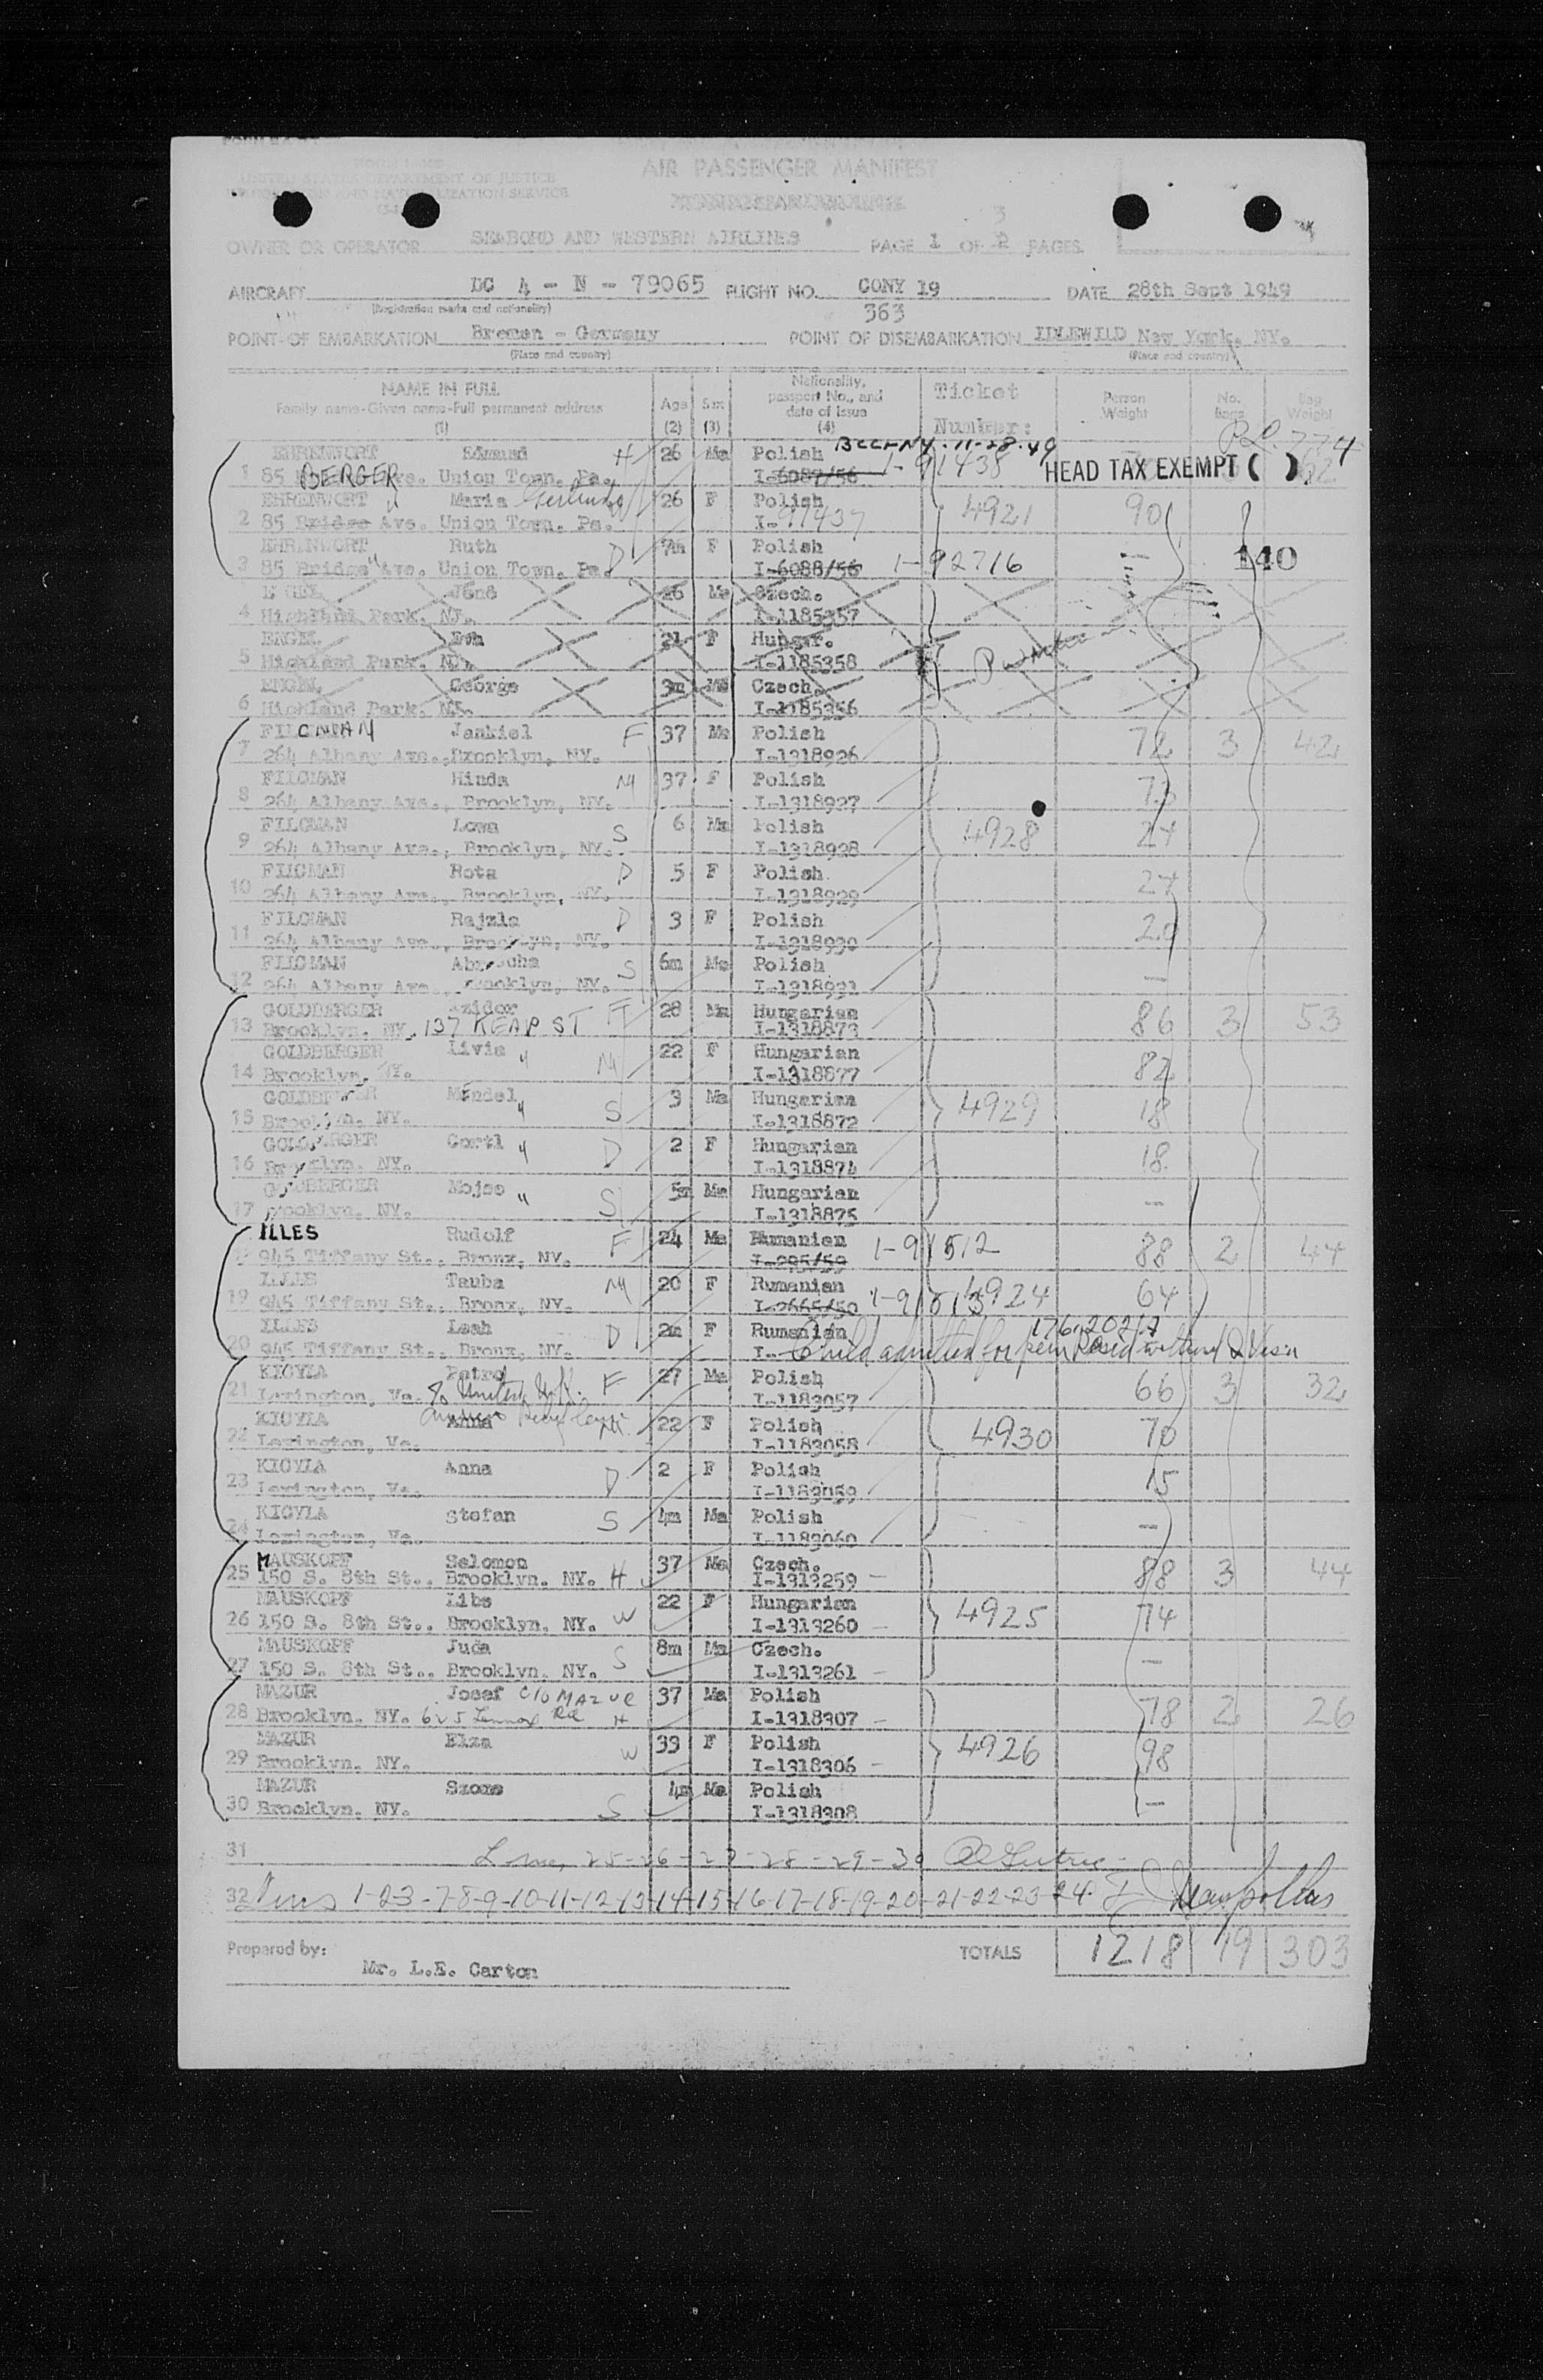 AIR PASSENGER MANIFEST
UNITED STATES DEPARTMENT OF JUSTICE
IMMIGRATION AND NATURALIZATION SERVICE
OWNER OR OPERATOR SEABORD AND WESTERN AIRLINES PAGE 1 OF 3 PAGES
AIRCRAFT DC 4 - N - 79065 FLIGHT NO. CONY 19 DATE 28th Sept 1949
(Registration marks and nationality) 363
POINT OF EMBARKATION Bremen - Germany POINT OF DISEMBARKATION IDLEWILD New York. NY.
(Place and country) (Place and country)
NAME IN FULL Age Sex Nationality, passport No., and date of issue Ticket Number: Person Weight No. Bags Bag Weight
Family name-Given name-Full permanent address
(1) (2) (3) (4)
PL. 774
EHRENWORT Edmund H 26 Ma Polish BCCL-NY. 11-28-49
1 85 BERGER Ave. Union Town. Pa. I-6087/56 I-91438 HEAD TAX EXEMPT ( )
EHRENWORT Maria W 26 F Polish 4921 90
2 85 Bridge Ave. Union Town. Pa. I-91437
EHRENWORT Ruth D 7m F Polish
3 85 Bridge Ave. Union Town. Pa. I-6088/56 I-92716 140
ENGEL Jeno 26 Ma Czech.
4 Highland Park. NJ. I-1185357
ENGEL Eva 21 F Hungar.
5 Highland Park. NJ. I-1185358
ENGEL George 3m Ma Czech.
6 Highland Park. NJ. I-1185356
FILCMAN Jankiel F 37 Ma Polish 72 3 42
7 264 Albany Ave., Brooklyn, NY. I-1318926
FILCMAN Hinda M 37 F Polish 73
8 264 Albany Ave., Brooklyn, NY. I-1318927
FILCMAN Lowa S 6 Ma Polish 4928 24
9 264 Albany Ave., Brooklyn, NY. I-1318928
FILCMAN Rota D 5 F Polish 27
10 264 Albany Ave., Brooklyn, NY. I-1318929
FILCMAN Rajzla D 3 F Polish 20
11 264 Albany Ave., Brooklyn, NY. I-1318930
FILCMAN S 6m Ma Polish —
12 264 Albany Ave., Brooklyn, NY. I-1318931
GOLDBERGER F 28 Ma Hungarian 86 3 53
13 Brooklyn. NY. 137 KEAP ST I-1318873
GOLDBERGER Livia " M 22 F Hungarian 82
14 Brooklyn. NY. I-1318877
GOLDBERGER Mendel " S 3 Ma Hungarian 4929 18
15 Brooklyn. NY. I-1318872
GOLDBERGER Gertl " D 2 F Hungarian 18
16 Brooklyn. NY. I-1318874
GOLDBERGER Mojse " S 5m Ma Hungarian —
17 Brooklyn. NY. I-1318875
ILLES Rudolf F 24 Ma Rumanian I-91512 88 2 44
945 Tiffany St., Bronx, NY. I-295/59
ILLES Tauba M 20 F Rumanian 4924 64
19 945 Tiffany St., Bronx, NY. I-2665/50 I-91513
ILLES Leah D 2m F Rumanian
20 945 Tiffany St., Bronx, NY. I- Child admitted for perm Resid without a Visa
KICYLA Petro F 27 Ma Polish 66 3 32
21 Lexington, Va. I-1183057
KICYLA Anna M. 22 F Polish 4930 70
22 Lexington, Va. I-1183058
KICYLA Anna D 2 F Polish 15
23 Lexington, Va. I-1183059
KICYLA Stefan S 4m Ma Polish —
24 Lexington, Va. I-1183060
MAUSKOPF Salomon 37 Ma Czech. 88 3 44
25 150 S. 8th St., Brooklyn. NY. H I-1313259
MAUSKOPF Libe 22 F Hungarian 4925 74
26 150 S. 8th St., Brooklyn. NY. W I-1313260
MAUSKOPF Juda S 8m Ma Czech. —
27 150 S. 8th St., Brooklyn. NY. I-1313261
MAZUR Josef C/o MAZUR 37 Ma Polish 78 2 26
28 Brooklyn. NY. 625 Lennox Rd H I-1318307
MAZUR Elza W 33 F Polish 4926 98
29 Brooklyn. NY. I-1318306
MAZUR S 4m Ma Polish —
30 Brooklyn. NY. I-1318308
31 25-26-27-28-29-30
32 1-2-3-7-8-9-10-11-12-13-14-15-16-17-18-19-20-21-22-23-24
Prepared by: TOTALS 1218 19 303
Mr. L.E. Carton